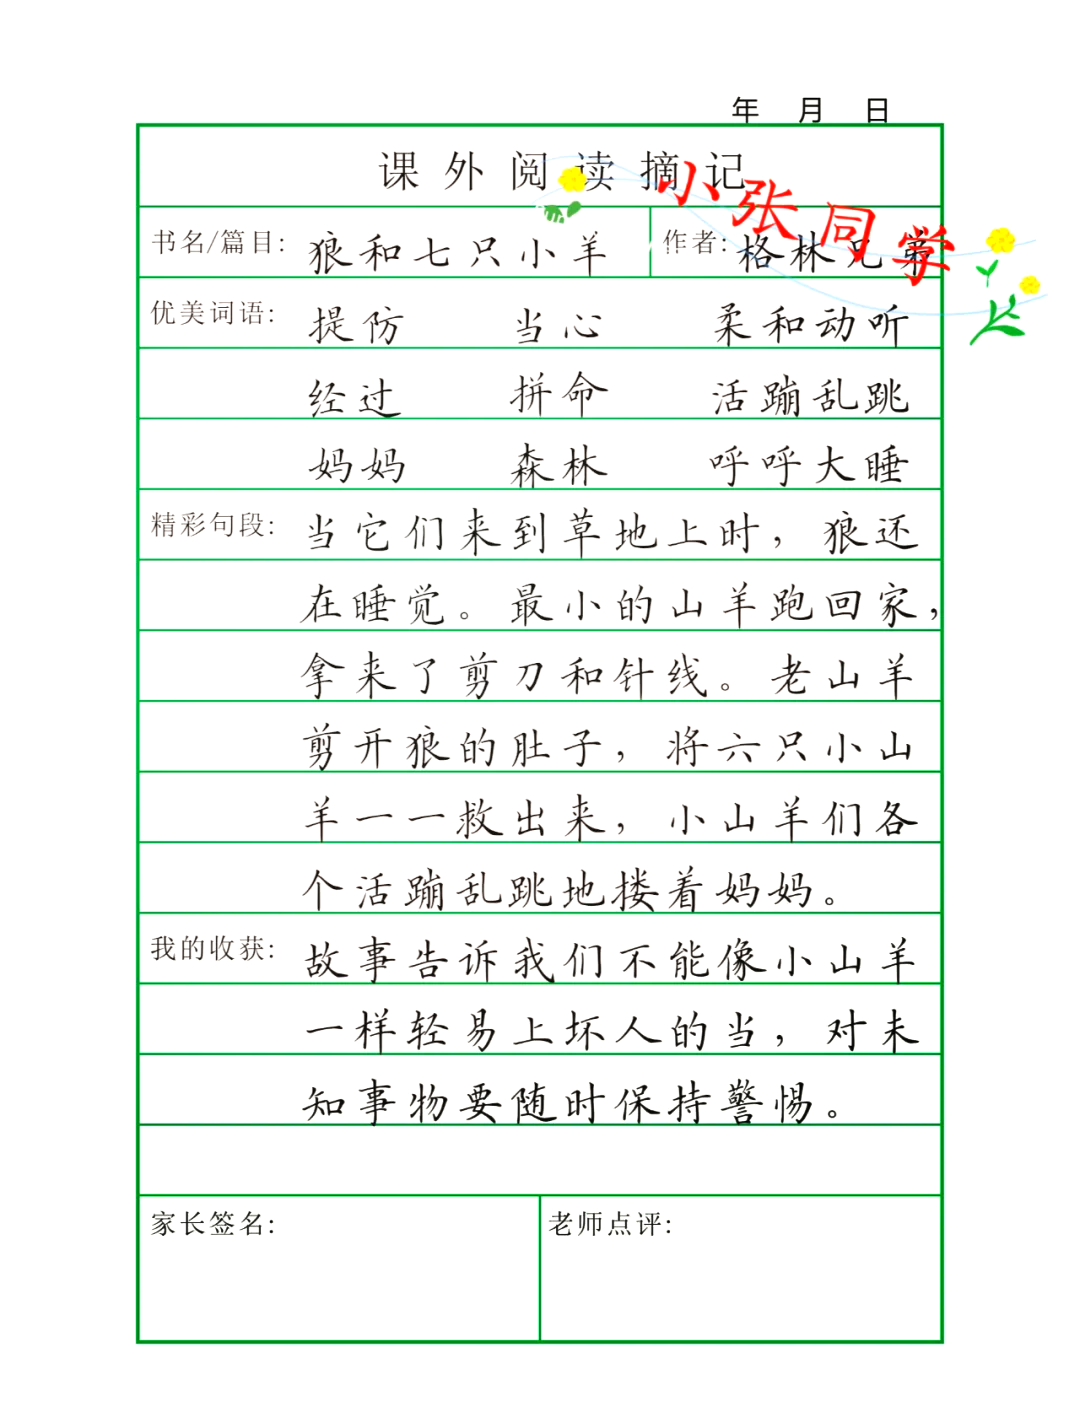 年 月 日
课外阅读摘记
小张同学
书名/篇目: 狼和七只小羊 作者: 格林兄弟
优美词语: 提防 当心 柔和动听
经过 拼命 活蹦乱跳
妈妈 森林 呼呼大睡
精彩句段: 当它们来到草地上时，狼还
在睡觉。最小的山羊跑回家，
拿来了剪刀和针线。老山羊
剪开狼的肚子，将六只小山
羊一一救出来，小山羊们各
个活蹦乱跳地搂着妈妈。
我的收获: 故事告诉我们不能像小山羊
一样轻易上坏人的当，对未
知事物要随时保持警惕。
家长签名: 老师点评: